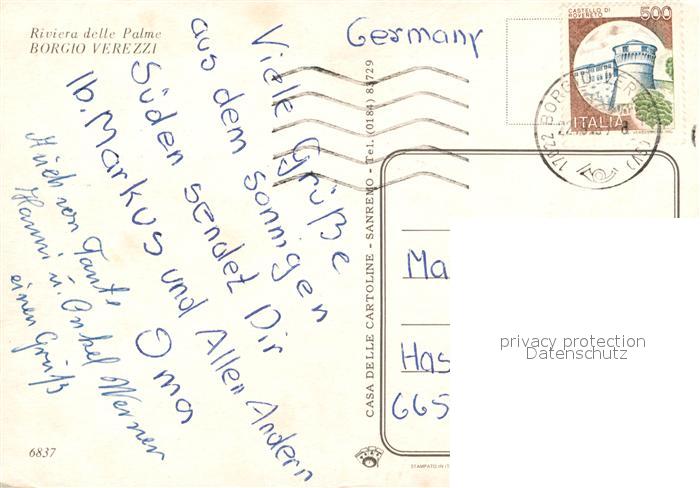 Riviera delle Palme
BORGIO VEREZZI
Viele Grüße
aus dem sonnigen
Süden sendet Dir
lb. Markus und Allen Andern
Oma
Auch von Tante
Hanni u. Onkel Werner
einen Gruß
6837
CASA DELLE CARTOLINE - SANREMO - Tel. (0184) 83729
STAMPATO IN IT
Germany
CASTELLO DI
ROVERETO
500
ITALIA
17022 BORGIO
(SV)
Ma
Has
665
privacy protection
Datenschutz